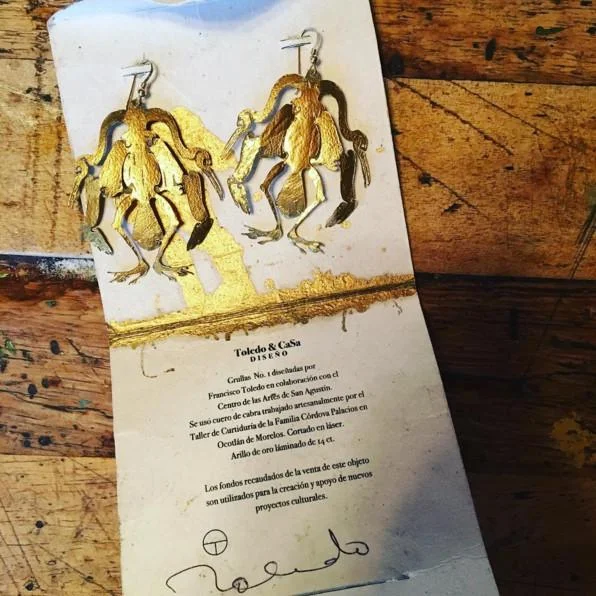 Toledo & CaSa
DISEÑO
Grullas No. 1 diseñadas por
Francisco Toledo en colaboración con el
Centro de las Artes de San Agustín.
Se usó cuero de cabra trabajado artesanalmente por el
Taller de Curtiduría de la Familia Córdova Palacios en
Ocotlán de Morelos. Cortado en láser.
Arillo de oro láminado de 14 ct.
Los fondos recaudados de la venta de este objeto
son utilizados para la creación y apoyo de nuevos
proyectos culturales.
T
Toledo